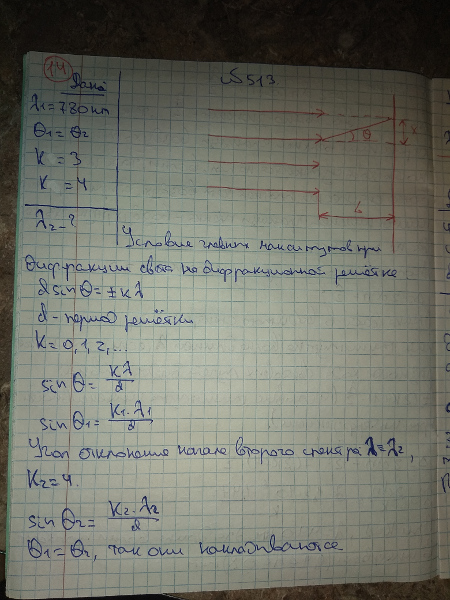 14
№513
Дано
λ1 = 780 нм
θ1 = θ2
K = 3
K = 4
λ2 - ?
x
θ
L
Условие главных максимумов при
дифракции свет на дифракционной решётке
d sin θ = ± k λ
d - период решётки
K = 0, 1, 2, ...
sin θ = Kλ/d
sin θ1 = K1·λ1/d
Угол отклонения начале второго спектра λ = λ2,
K2 = 4.
sin θ2 = K2·λ2/d
θ1 = θ2, так они накладываются